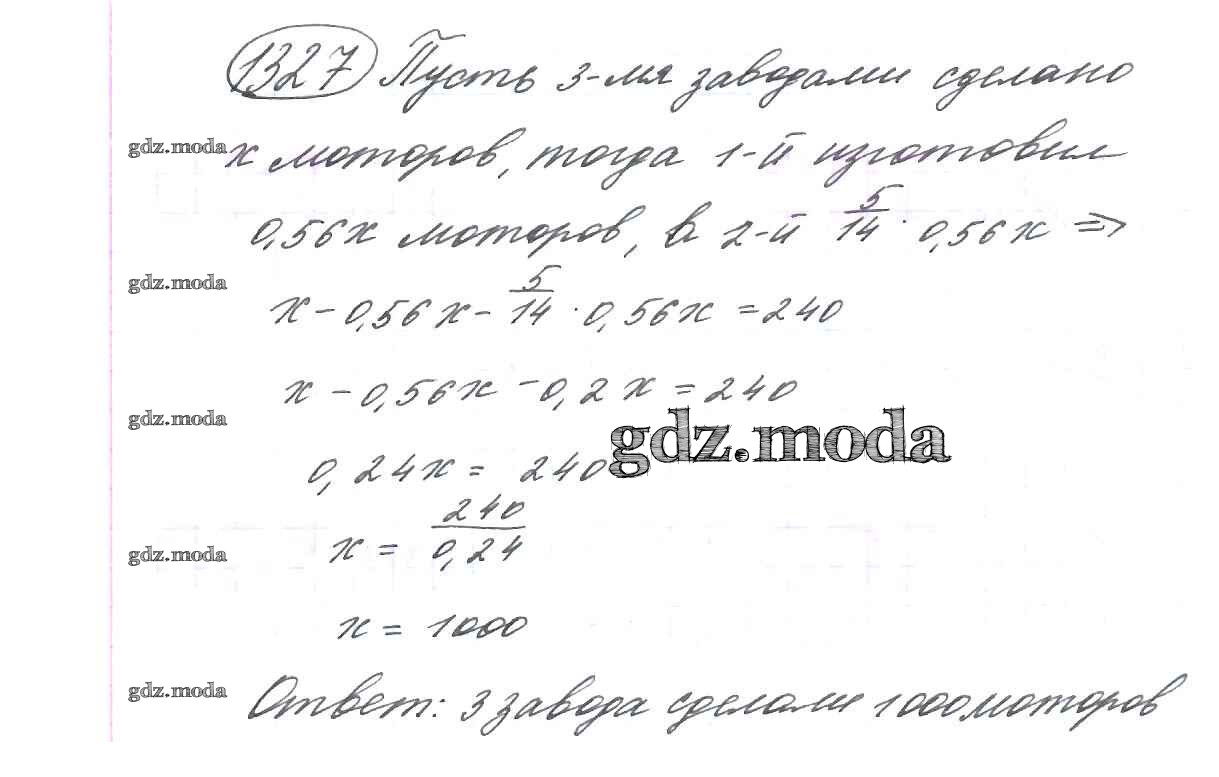 1327 Пусть 3-мя заводами сделано
gdz.moda
x моторов, тогда 1-й изготовил
0,56x моторов, а 2-й 5/14 · 0,56x =>
gdz.moda
x - 0,56x - 5/14 · 0,56x = 240
x - 0,56x - 0,2x = 240
gdz.moda
gdz.moda
0,24x = 240
x = 240/0,24
gdz.moda
x = 1000
gdz.moda
Ответ: 3 завода сделали 1000 моторов